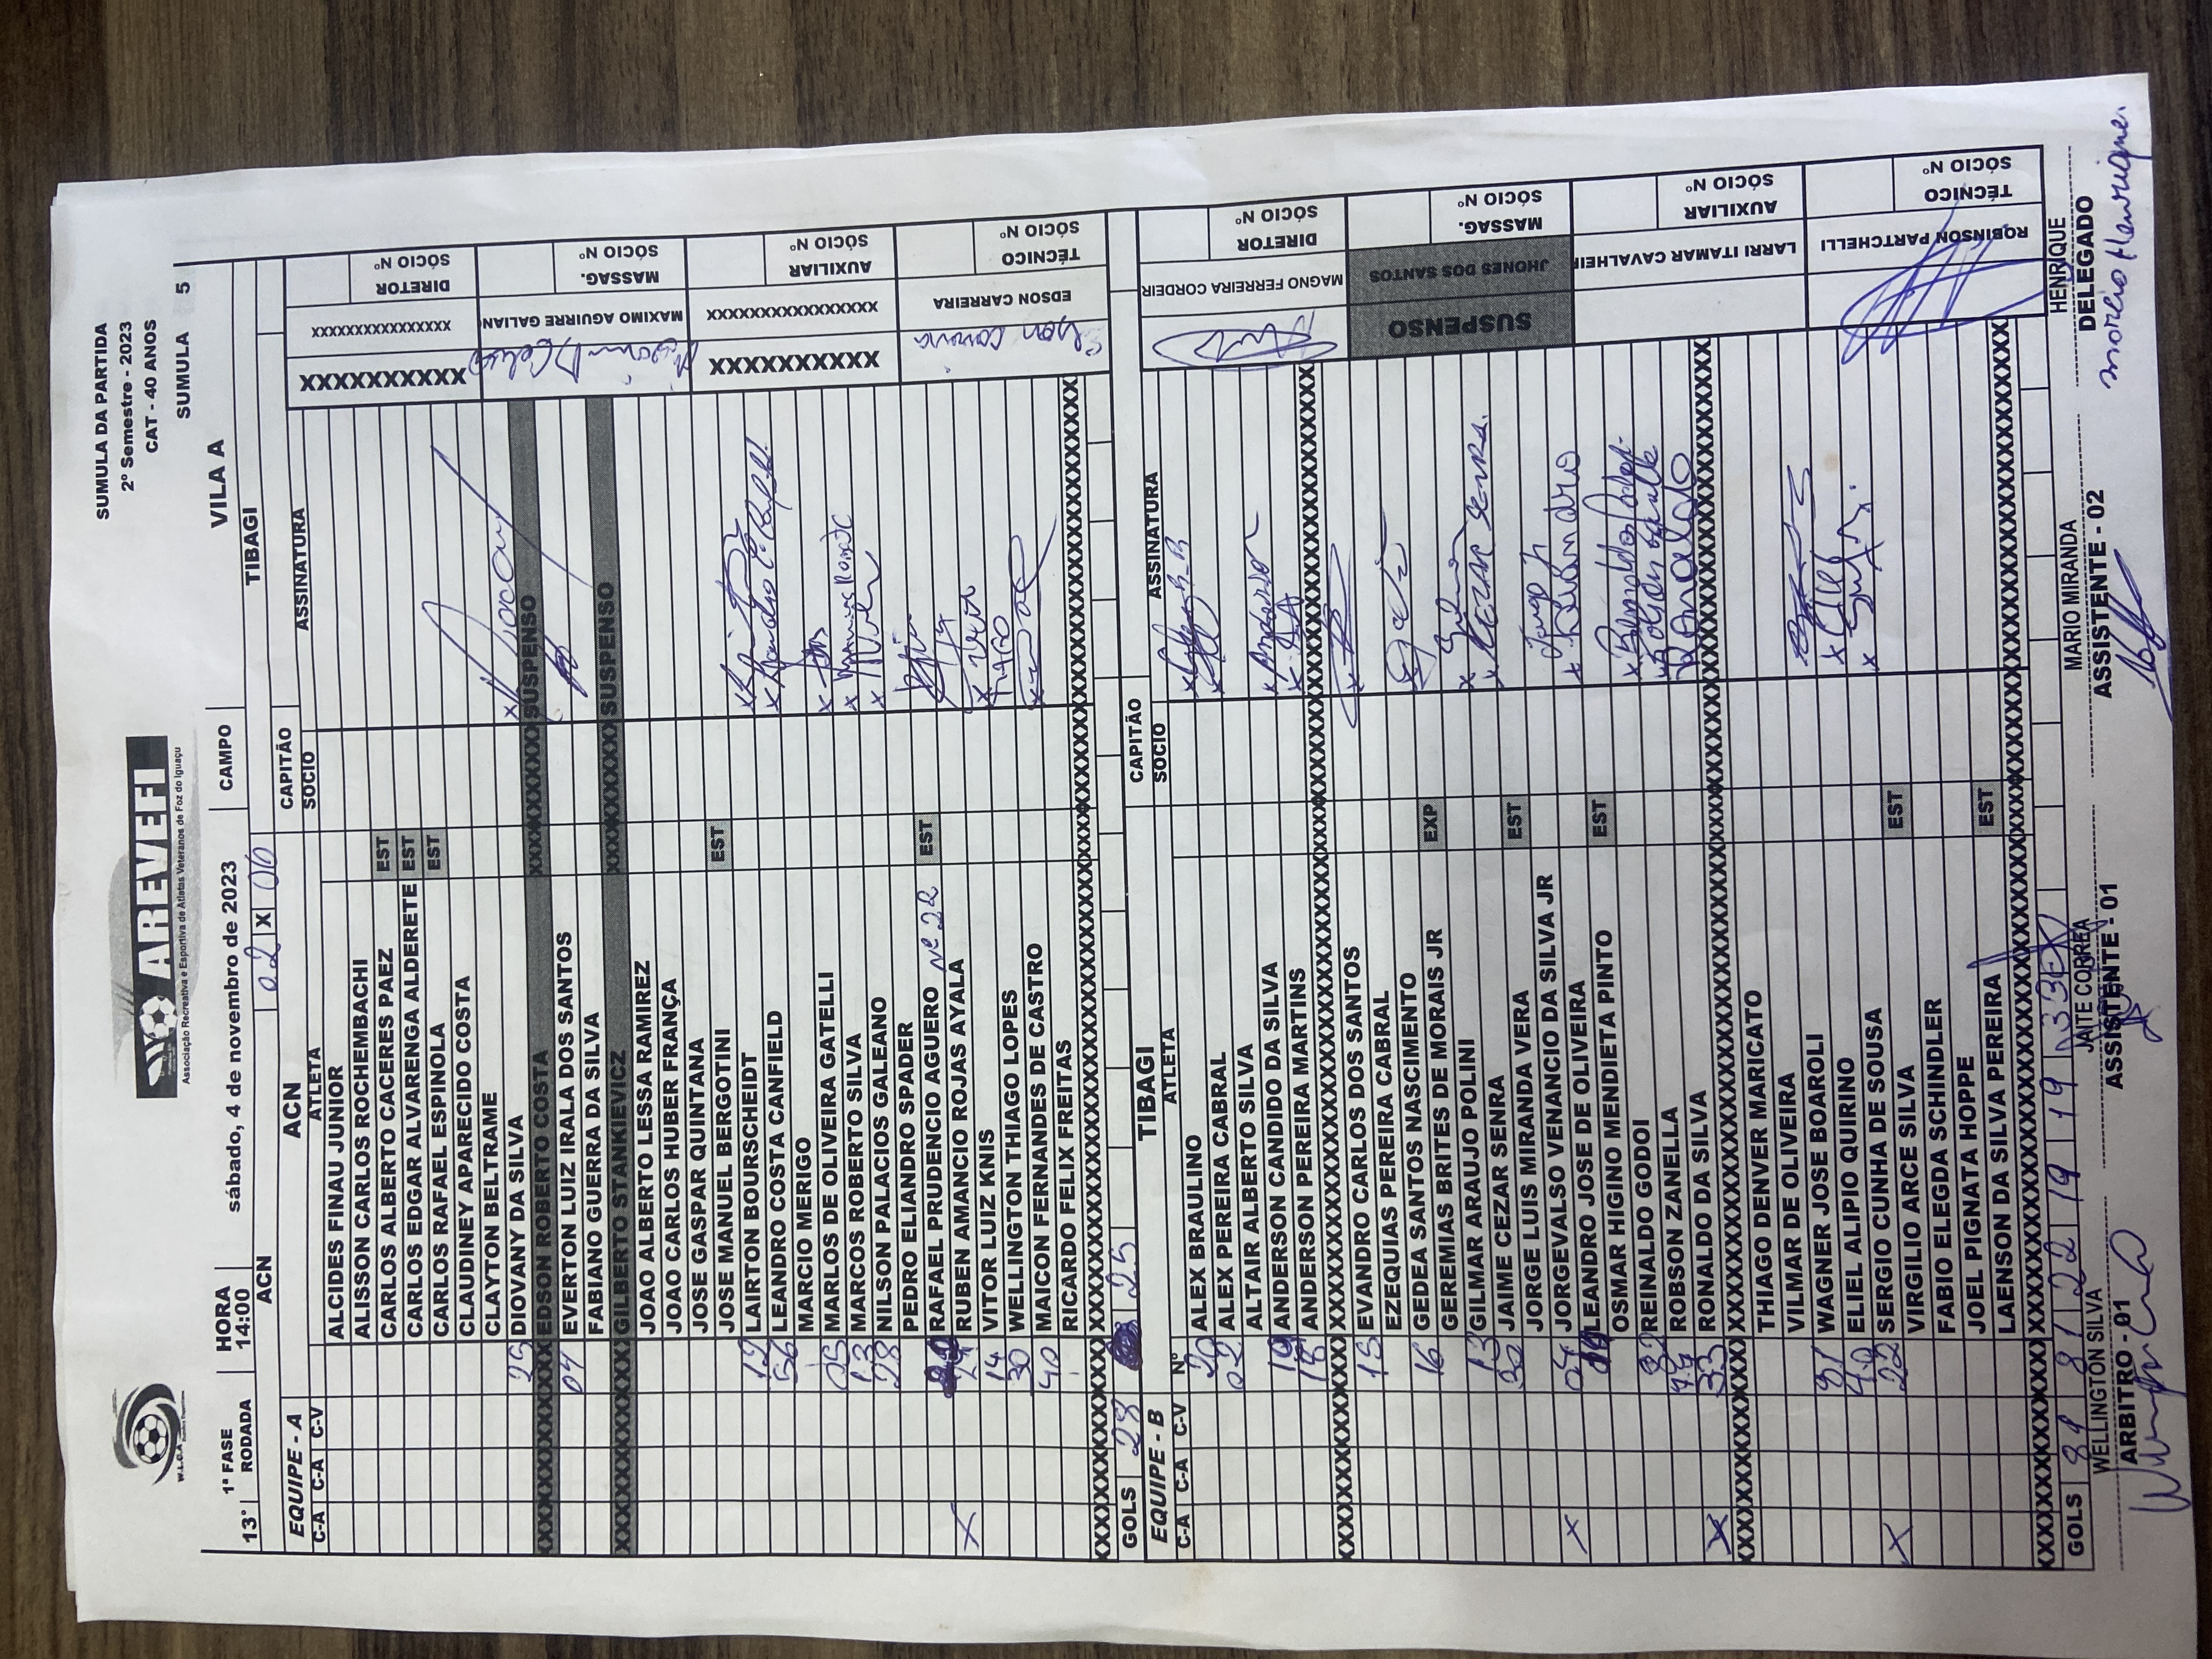 W.L.C.A
AREVEFI
Associação Recreativa e Esportiva de Atletas Veteranos de Foz do Iguaçu
SUMULA DA PARTIDA
2º Semestre - 2023
CAT - 40 ANOS
SUMULA 5
13ª 1ª FASE RODADA HORA 14:00 sábado, 4 de novembro de 2023 CAMPO VILA A
ACN 02 X 00 TIBAGI
EQUIPE - A ACN CAPITÃO
C-A C-A C-V ATLETA SOCIO ASSINATURA
ALCIDES FINAU JUNIOR
ALISSON CARLOS ROCHEMBACHI
CARLOS ALBERTO CACERES PAEZ EST
CARLOS EDGAR ALVARENGA ALDERETE EST
CARLOS RAFAEL ESPINOLA EST
CLAUDINEY APARECIDO COSTA
CLAYTON BELTRAME
25 DIOVANY DA SILVA
XXXXXXXXX EDSON ROBERTO COSTA XXXXXXXXX SUSPENSO
07 EVERTON LUIZ IRALA DOS SANTOS
FABIANO GUERRA DA SILVA
XXXXXXXXX GILBERTO STANKIEVICZ XXXXXXXXX SUSPENSO
JOAO ALBERTO LESSA RAMIREZ
JOAO CARLOS HUBER FRANÇA
JOSE GASPAR QUINTANA
JOSE MANUEL BERGOTINI EST
LAIRTON BOURSCHEIDT
56 LEANDRO COSTA CANFIELD
MARCIO MERIGO
05 MARLOS DE OLIVEIRA GATELLI
13 MARCOS ROBERTO SILVA
28 NILSON PALACIOS GALEANO
PEDRO ELIANDRO SPADER
RAFAEL PRUDENCIO AGUERO Nº 22 EST
X RUBEN AMANCIO ROJAS AYALA
14 VITOR LUIZ KNIS
30 WELLINGTON THIAGO LOPES
40 MAICON FERNANDES DE CASTRO
RICARDO FELIX FREITAS
GOLS 28 25
DIRETOR SÓCIO Nº
XXXXXXXXXX XXXXXXXXXXXXXXXX
MASSAG. SÓCIO Nº
MAXIMO AGUIRRE GALIAN
AUXILIAR SÓCIO Nº
XXXXXXXXXX XXXXXXXXXXXXXXXX
TÉCNICO SÓCIO Nº
EDSON CARREIRA
EQUIPE - B TIBAGI CAPITÃO
C-A C-A C-V Nº ATLETA SOCIO ASSINATURA
20 ALEX BRAULINO
02 ALEX PEREIRA CABRAL
ALTAIR ALBERTO SILVA
ANDERSON CANDIDO DA SILVA Anderson
18 ANDERSON PEREIRA MARTINS
15 EVANDRO CARLOS DOS SANTOS
EZEQUIAS PEREIRA CABRAL
16 GEDEA SANTOS NASCIMENTO
GEREMIAS BRITES DE MORAIS JR EXP
13 GILMAR ARAUJO POLINI
30 JAIME CEZAR SENRA x CEZAR SENRA.
JORGE LUIS MIRANDA VERA EST
X 07 JORGEVALSO VENANCIO DA SILVA JR
LEANDRO JOSE DE OLIVEIRA x Leandro
OSMAR HIGINO MENDIETA PINTO EST
REINALDO GODOI
77 ROBSON ZANELLA
X 33 RONALDO DA SILVA Ronaldo
THIAGO DENVER MARICATO
VILMAR DE OLIVEIRA
WAGNER JOSE BOAROLI
ELIEL ALIPIO QUIRINO
X 22 SERGIO CUNHA DE SOUSA
VIRGILIO ARCE SILVA EST
FABIO ELEGDA SCHINDLER
JOEL PIGNATA HOPPE
LAENSON DA SILVA PEREIRA EST
DIRETOR SÓCIO Nº
MAGNO FERREIRA CORDEIR
MASSAG. SÓCIO Nº
SUSPENSO JHONES DOS SANTOS
AUXILIAR SÓCIO Nº
LARRI ITAMAR CAVALHEIR
TÉCNICO SÓCIO Nº
ROBINSON PARTCHELLI
GOLS 22 19 19
WELLINGTON SILVA JAITE CORREA MARIO MIRANDA HENRIQUE
ARBITRO - 01 ASSISTENTE - 01 ASSISTENTE - 02 DELEGADO